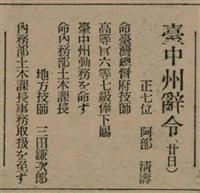 臺中州辭令(廿日)
正七位 阿部 淸濤
命臺灣總督府技師
高等官六等七級俸下賜
臺中州勤務を命ず
命內務部土木課長
地方技師 三田鎌次郎
內務部土木課長事務取扱を免ず